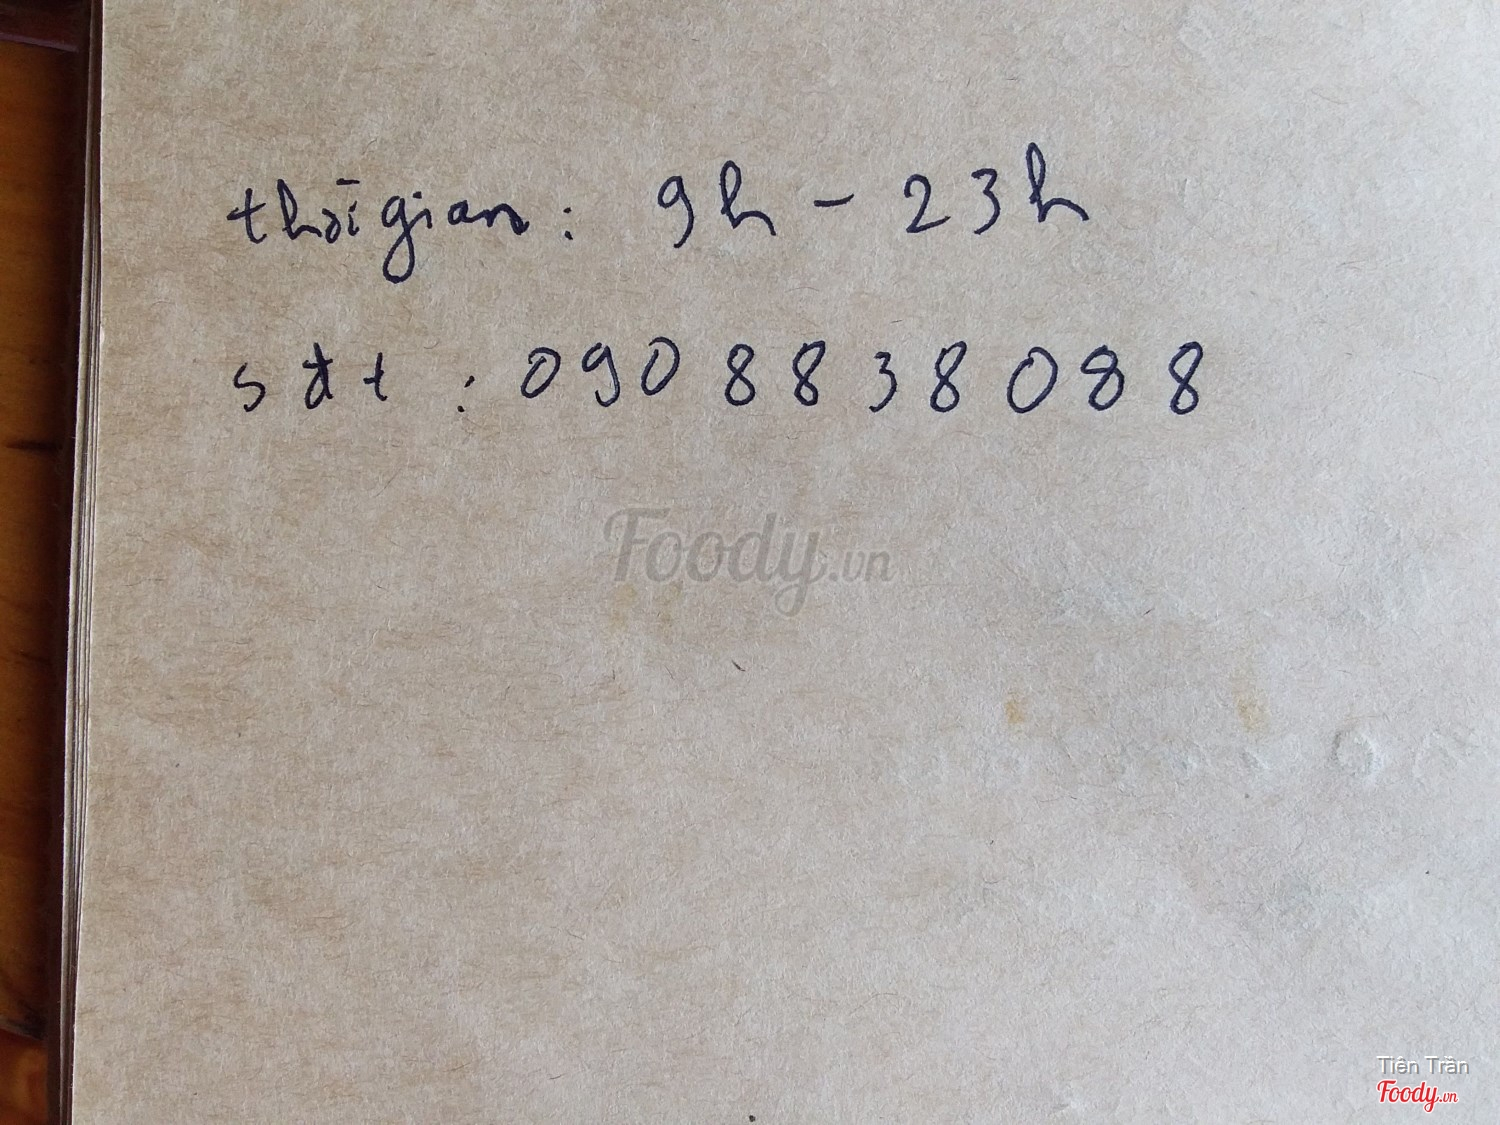 thời gian : 9h - 23h
sđt : 0908838088
Foody.vn
Tiên Trần
Foody.vn